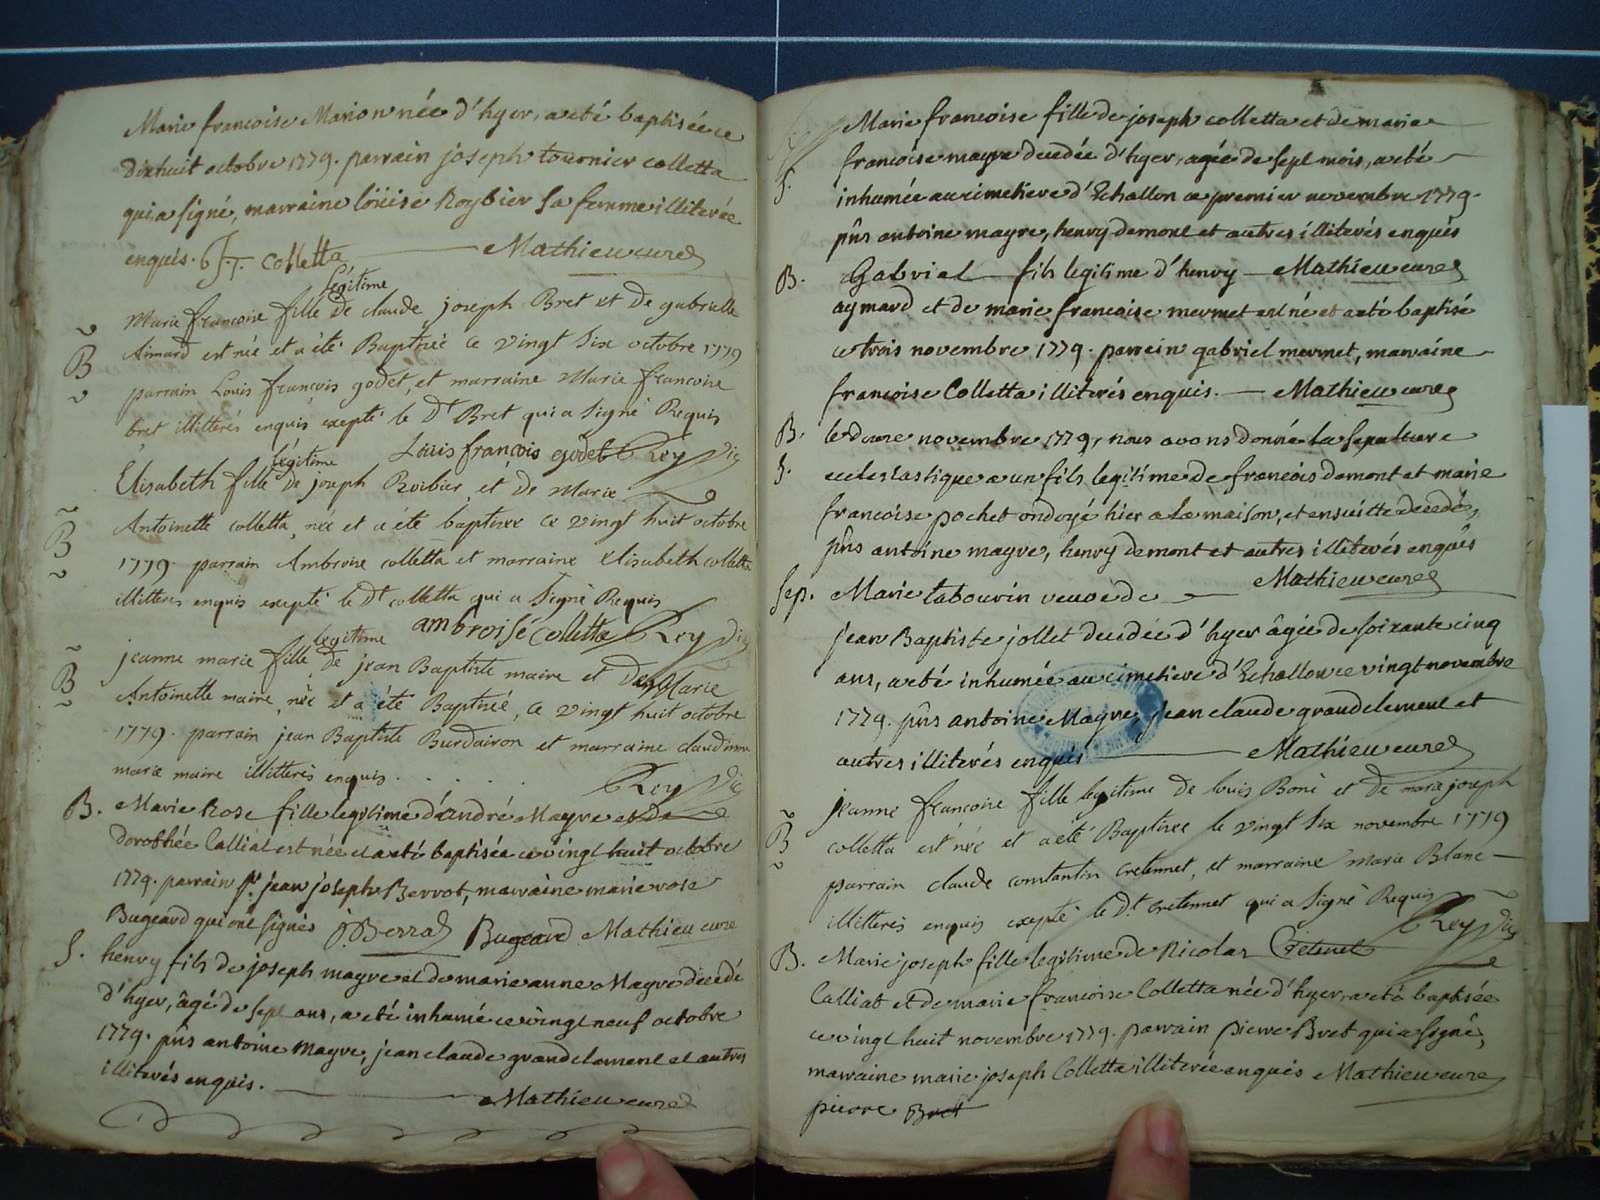 Marie francoise Marion née d'hyer, a eté baptisée ce
dixhuit octobre 1779. parrain joseph tournier colletta
qui a signé, marraine loüise Roybier sa femme illiterée
enquis. J T. Colletta Mathieu curé
légitime
Marie francoise fille de claude joseph Bret et de gabrielle
Aimard est née et a été Baptisée ce vingt six octobre 1779
B
parrain Louis françois godet, et marraine Marie francoise
bret illitterés enquis exepté le Dt Bret qui a signé Requis
Louis françois godet Rey Vic
légitime
Elisabeth fille de joseph Roibier et de Marie
Antoinette colletta, née et a été baptisée ce vingt huit octobre
B
1779. parrain Ambroise colletta et marraine Elisabeth colletta
illitterés enquis exepté le Dt colletta qui a signé Requis
ambroise Coletta Rey Vic
légitime
jeanne marie fille de jean Baptiste maire et de Marie
B
Antoinette maire, née et a été Baptisée, ce vingt huit octobre
1779. parrain jean Baptiste Burdairon et marraine claudine
marie maire illitterés enquis . . . . Rey Vic
B. Marie Rose fille legitime d'andré Mayre et de
dorothée Calliat est née et a eté baptisée ce vingt huit octobre
1779. parrain Sr. jean joseph Berrot, marraine marie rose
Bugeard qui ont signés J. Berrod Bugeard Mathieu curé
S. henry fils de joseph mayre et de marie anne Mayre decedé
d'hyer, âgé de sept ans, a eté inhumé ce vingt neuf octobre
1779. pñs antoine mayre, jean claude grandclement et autres
illiterés enquis.
Mathieu curé
Marie francoise fille de joseph colletta et de marie
francoise mayre decedée d'hyer, agée de sept mois, a eté
S.
inhumée au cimetiere d'Echallon ce premier novembre 1779.
pñs antoine mayre, henry demont et autres illiterés enquis
B. Gabriel fils legitime d'henry Mathieu curé
aymard et de marie francoise mermet est né et a eté baptisé
ce trois novembre 1779. parrein gabriel mermet, marraine
francoise Colletta illiterés enquis. Mathieu curé
B. le douze novembre 1779, nous avons donné la sepulture
S. ecclesiastique a un fils legitime de francois demont et marie
francoise pochet ondoyé hier a la maison, et ensuitte decedé,
pñs antoine mayre, henry demont et autres illiterés enquis
Mathieu curé
Sep. Marie tabourin veuve de
jean Baptiste jollet decedée d'hyer âgée de soixante cinq
ans, a eté inhumée au cimetiere d'Echallon ce vingt novembre
1779. pñs antoine Mayre, jean claude grandclement et
autres illiterés enquis Mathieu curé
jeanne francoise fille legitime de louis Boni et de marie joseph
B
colletta est née et a été Baptisée le vingt six novembre 1779
parrain claude constantin cretennet, et marraine Marie Blanc
illitterés enquis exepté le Dt. cretennet qui a signé Requis
Rey Vic
B. Marie joseph fille legitime de Nicolas Cretenet
Calliat et de marie francoise Colletta née d'hyer, a eté baptisée
ce vingt huit novembre 1779. parrain pierre Bret qui a signé,
marraine marie joseph Colletta illiterée enquis Mathieu curé
pierre Bret